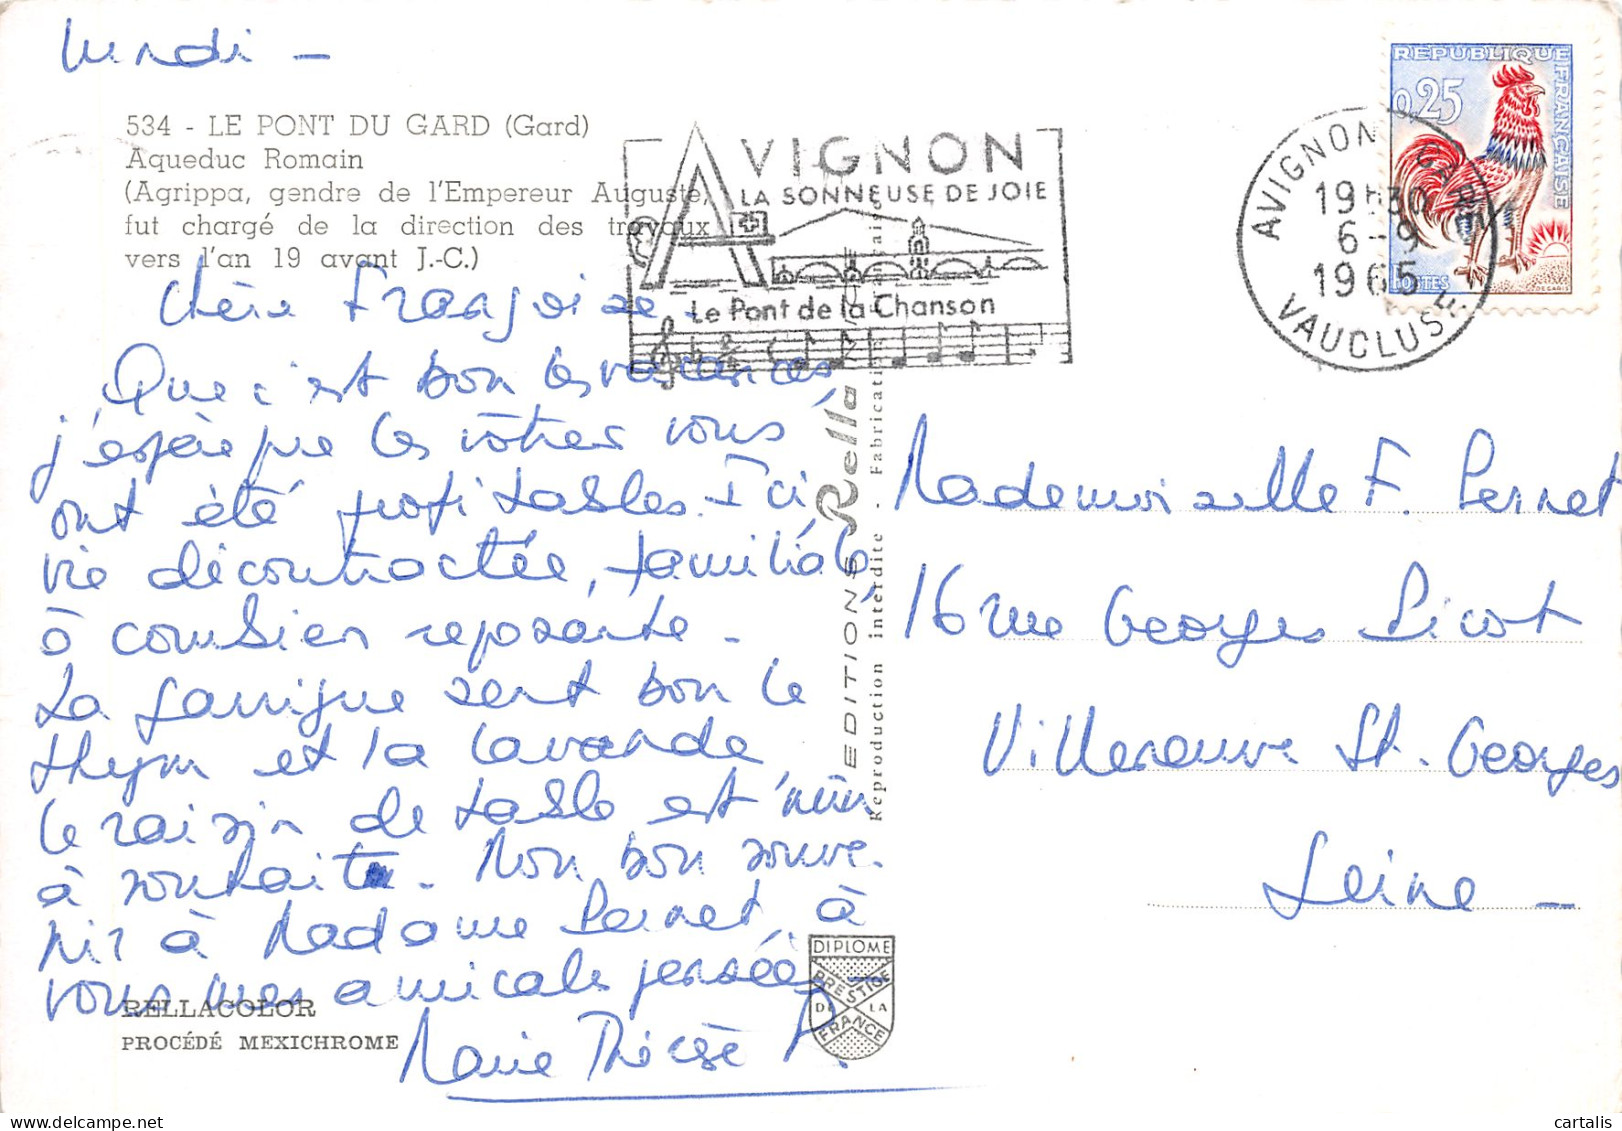 lundi –
534 - LE PONT DU GARD (Gard)
Aqueduc Romain
(Agrippa, gendre de l'Empereur Auguste,
fut chargé de la direction des travaux
vers l'an 19 avant J.-C.)
Chère Françoise.
Que c'est bon les vacances,
j'espère que les vôtres vous
ont été profitables. Ici
vie décontractée, familiale,
ô combien reposante –
La garrigue sent bon le
thym et la lavande
le raisin de table est mûr
à souhait. Mon bon souve-
nir à Madame Pernet, à
vous mes amicales pensées –
Marie Thérèse P.
RELLACOLOR
PROCÉDÉ MEXICHROME
EDITIONS Rella
Reproduction interdite - Fabrication
DIPLOME
PRESTIGE
DE LA
FRANCE
AVIGNON
LA SONNEUSE DE JOIE
Le Pont de la Chanson
AVIGNON GARE
19H30
6-9
1965
VAUCLUSE
REPUBLIQUE FRANÇAISE
0,25
POSTES
Mademoiselle F. Pernet
16 rue Georges Picot
Villeneuve St. Georges
Seine –
cartalis
www.delcampe.net